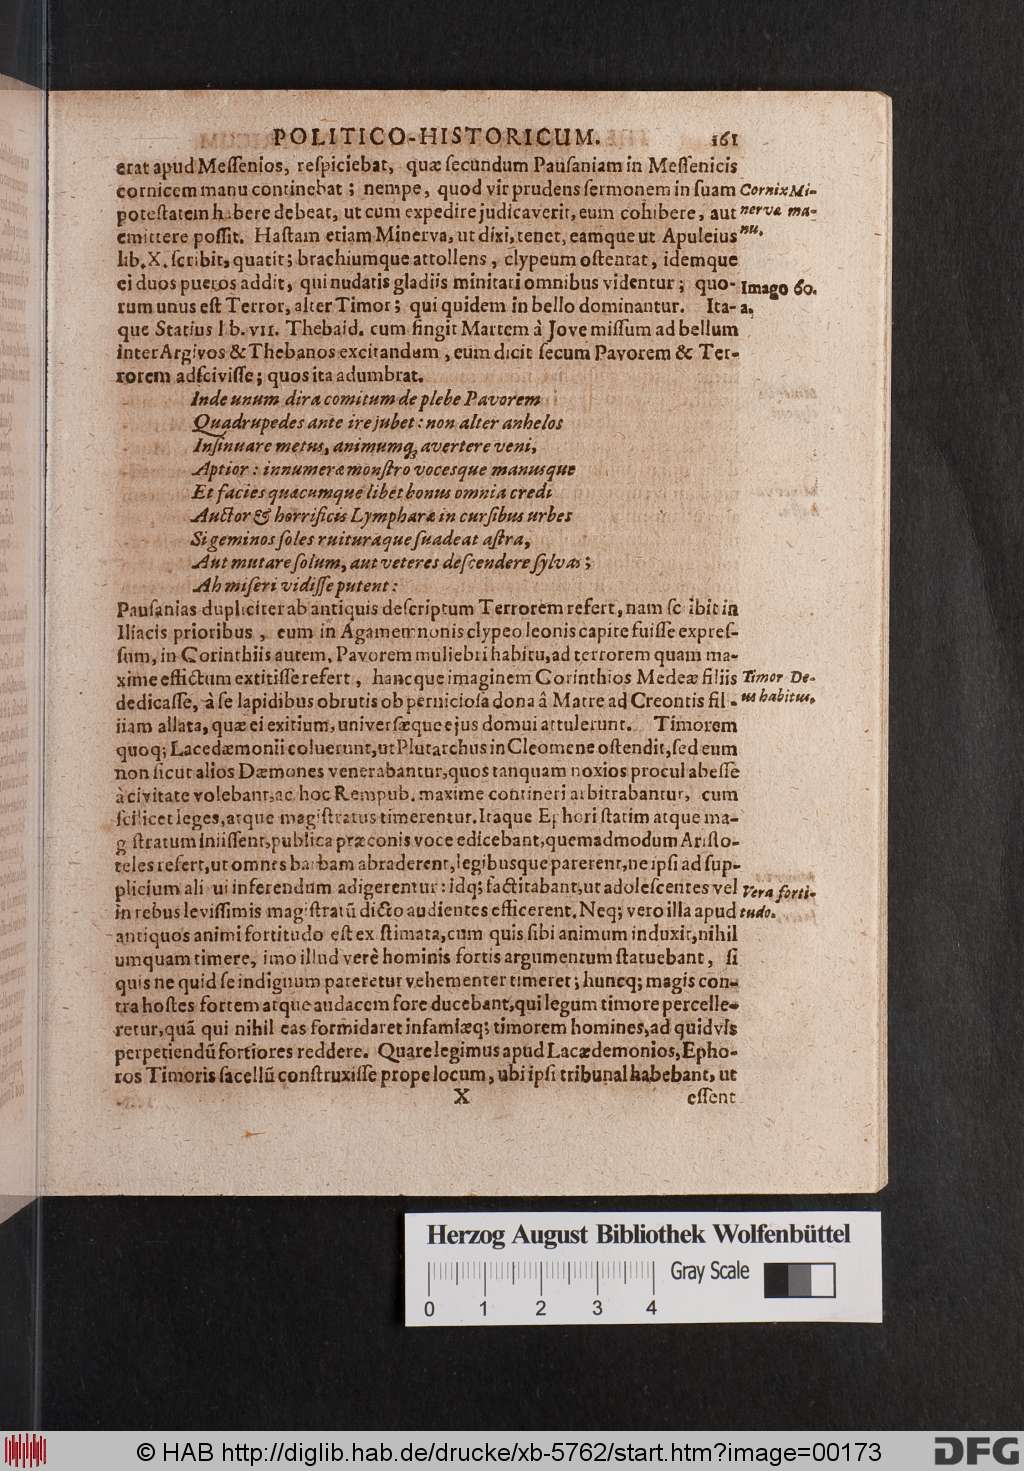 POLITICO-HISTORICUM. 161
erat apud Meſſenios, reſpiciebat, quæ ſecundum Pauſaniam in Meſſenicis
cornicem manu continebat ; nempe, quod vir prudens ſermonem in ſuam
Cornix Mi-
poteſtatem habere debeat, ut cum expedire judicaverit, eum cohibere, aut
nervæ ma-
emittere poſſit. Haſtam etiam Minerva, ut dixi, tenet, eamque ut Apuleius
nu.
lib. X. ſcribit, quatit; brachiumque attollens, clypeum oſtentat, idemque
ei duos pueros addit, qui nudatis gladiis minitari omnibus videntur ; quo-
Imago 60.
rum unus eſt Terror, alter Timor ; qui quidem in bello dominantur. Ita-
a.
que Statius l b. VII. Thebaid. cum fingit Martem à Jove miſſum ad bellum
inter Argivos & Thebanos excitandum, eum dicit ſecum Pavorem & Ter-
rorem adſciviſſe; quos ita adumbrat.
Inde unum dira comitum de plebe Pavorem
Quadrupedes ante ire jubet : non alter anhelos
Inſinuare metus, animumq; avertere veni,
Aptior : innumeræ monſtro vocesque manusque
Et facies quacumque libet bonus omnia credi
Auctor & horrificis Lympharæ in curſibus urbes
Si geminos ſoles ruituraque ſuadeat aſtra,
Aut mutare ſolum, aut veteres deſcendere ſylvas ;
Ah miſeri vidiſſe putent :
Pauſanias dupliciter ab antiquis deſcriptum Terrorem refert, nam ſc ibit in
Iliacis prioribus, eum in Agamemnonis clypeo leonis capite fuiſſe expreſ-
ſum, in Corinthiis autem, Pavorem muliebri habitu, ad terrorem quam ma-
xime effictum extitiſſe refert, hancque imaginem Corinthios Medeæ filiis
Timor De-
dedicaſſe, à ſe lapidibus obrutis ob pernicioſa dona â Matre ad Creontis fil -
us habitus,
iiam allata, quæ ei exitium, univerſæque ejus domui attulerunt. Timorem
quoq; Lacedæmonii coluerunt, ut Plutarchus in Cleomene oſtendit, ſed eum
non ſicut alios Dæmones venerabantur, quos tanquam noxios procul abeſſe
à civitate volebant, ac hoc Rempub. maxime contineri arbitrabantur, cum
ſcilicet leges, atque magiſtratus timerentur. Itaque Ephori ſtatim atque ma-
g ſtratum iniiſſent, publica præconis voce edicebant, quemadmodum Ariſto-
teles refert, ut omnes barbam abraderent, legibusque parerent, ne ipſi ad ſup-
plicium ali ui inferendum adigerentur : idq; factitabant, ut adoleſcentes vel
Vera forti-
in rebus leviſſimis magiſtratū dicto audientes efficerent. Neq; vero illa apud
tudo.
antiquos animi fortitudo eſt ex ſtimata, cum quis ſibi animum induxit, nihil
umquam timere, imo illud verè hominis fortis argumentum ſtatuebant, ſi
quis ne quid ſe indignum pateretur vehementer timeret ; huncq; magis con-
tra hoſtes fortem atque audacem fore ducebant, qui legum timore percelle-
retur, quã qui nihil eas formidaret infamiæq; timorem homines, ad quidvis
perpetiendū fortiores reddere. Quare legimus apud Lacædemonios, Epho-
ros Timoris ſacellū conſtruxiſſe prope locum, ubi ipſi tribunal habebant, ut
X eſſent
Herzog August Bibliothek Wolfenbüttel
Gray Scale
0 1 2 3 4
© HAB http://diglib.hab.de/drucke/xb-5762/start.htm?image=00173
DFG